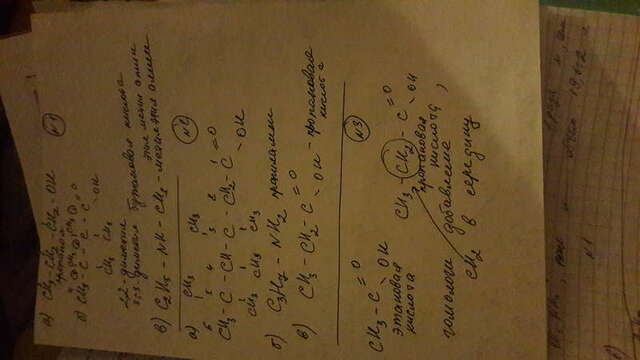 а) CH₃-CH₂-CH₂-OH
пропанол
N1
б) CH₃-C-C-C=O
OH
CH₃ CH₃
2,2-диметил
3,3-диметил бутановая кислота
этил метил амин
в) C₂H₅-NH-CH₃ - метилэтил амин
N2
а) CH₃ CH₃
6 5 4 3 2 1
CH₃-C-CH-C-CH₂-C=O
OH
CH₃ CH₃ CH₃
б) C₃H₇-NH₂ пропиламин
в) CH₃-CH₂-C=O
OH - пропановая
кислота
N3
CH₃-C=O
OH
этановая
кислота
CH₃-CH₂-C=O
OH
пропановая
кислота
гомологи добавление
CH₂ в середину
N1